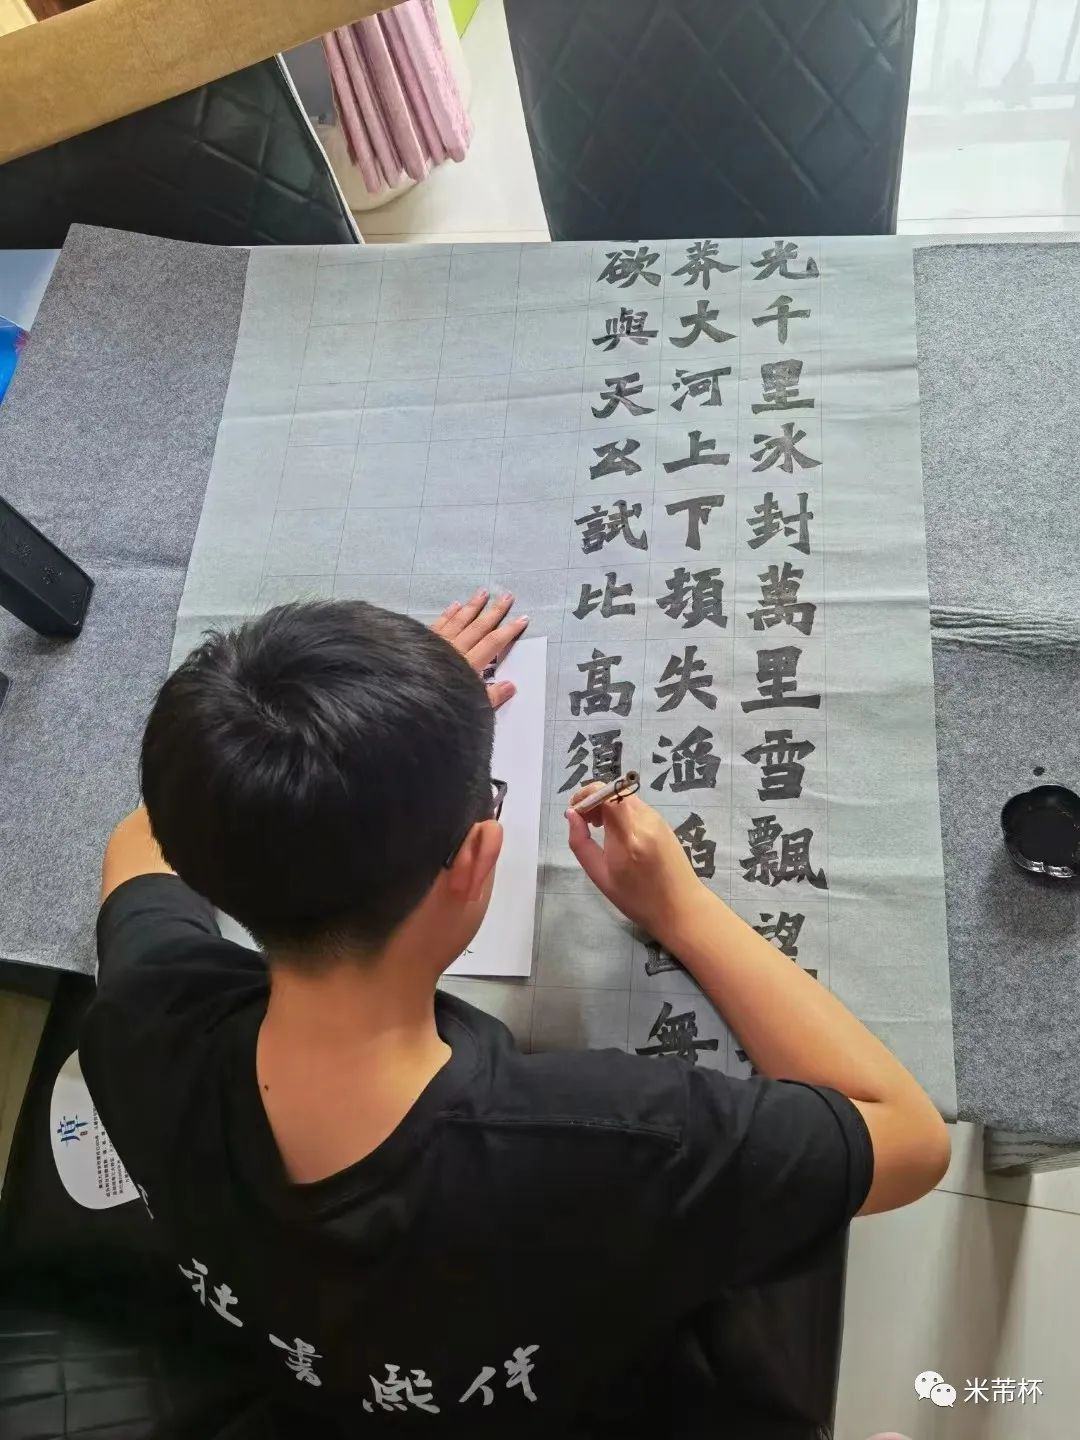 光千里冰封萬里雪飄望
莽大河上下頓失滔滔無
欲與天公試比高須
社書熙
米芾杯